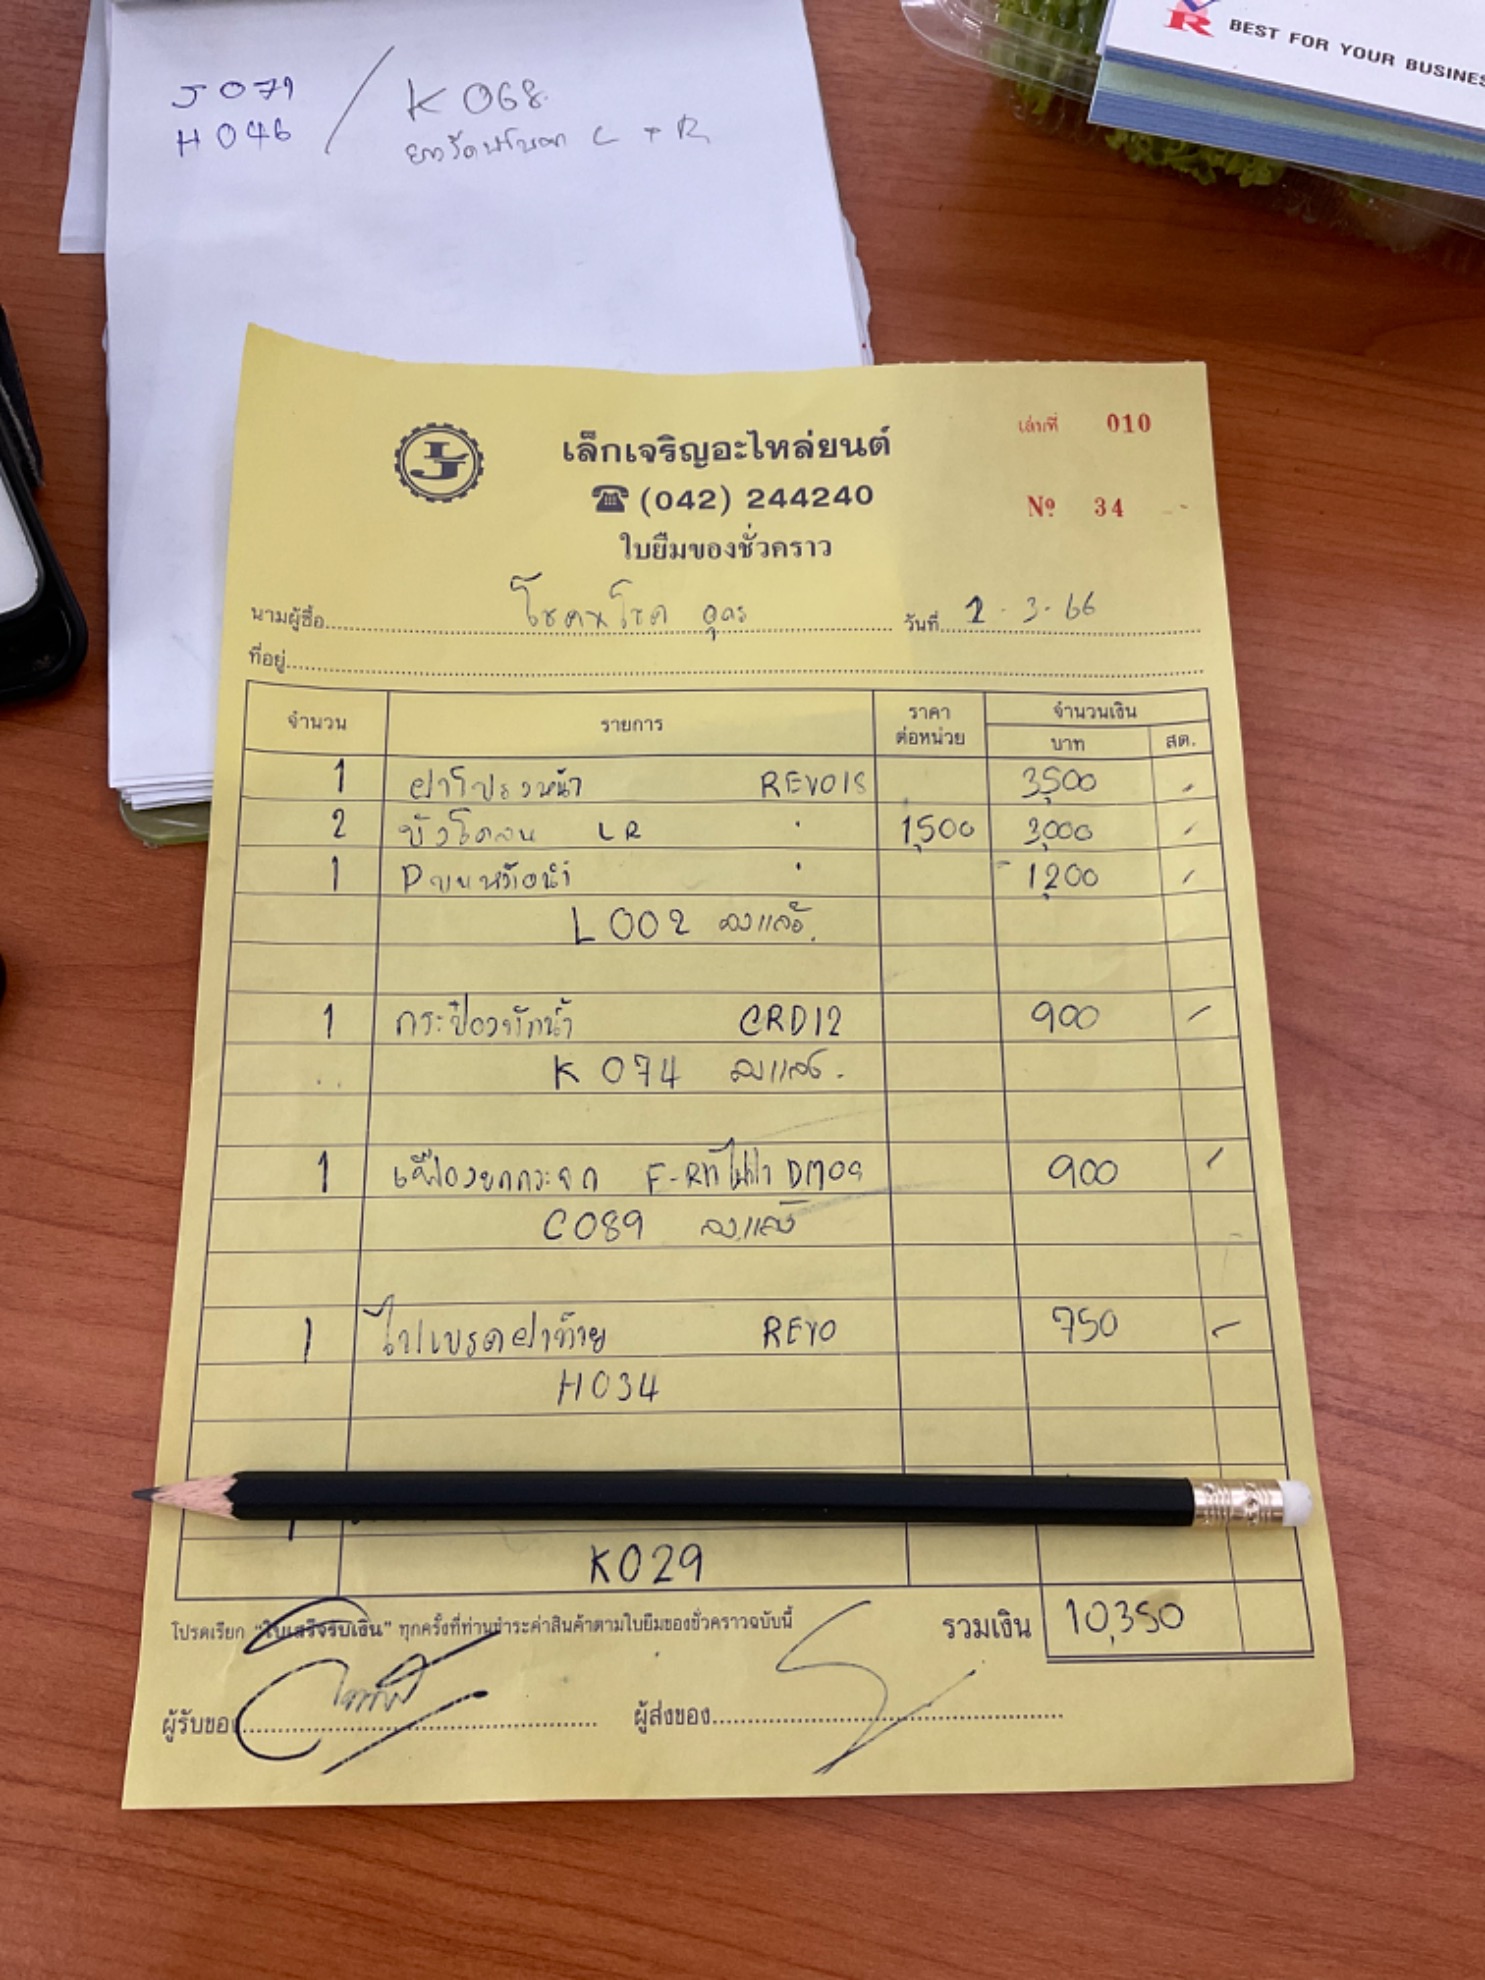 J 071 / K 068
H 046 L + R
R BEST FOR YOUR BUSINES
LJ
เล็กเจริญอะไหล่ยนต์
เล่มที่ 010
☎ (042) 244240
Nº 34
ใบยืมของชั่วคราว
นามผู้ซื้อ โชคxโชค อุดร วันที่ 2-3-66
ที่อยู่
จำนวน รายการ ราคาต่อหน่วย จำนวนเงิน
บาท สต.
1 ฝาโปรงหน้า REVO15 3,500 -
2 บังโคลน LR " 1,500 3,000 -
1 " 1,200 -
L 002 ลงแล้ว.
1 กระป๋องพักน้ำ CRD12 900 -
K 074 ลงแล้ว.
1 เฟืองยกกระจก F-R DM09 900 -
C089 ลงแล้ว
1 ไฟเบรคฝาท้าย REVO 750 -
H034
K029
โปรดเรียก "ใบเสร็จรับเงิน" ทุกครั้งที่ท่านชำระค่าสินค้าตามใบยืมของชั่วคราวฉบับนี้ รวมเงิน 10,350
ผู้รับของ ผู้ส่งของ